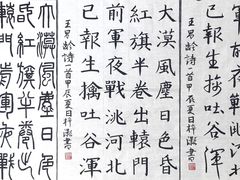 軍夜戰洮河北
已報生擒吐谷渾
王昌齡詩一首甲辰夏日梓溆書
大漠風塵日色昏
紅旗半卷出轅門
前軍夜戰洮河北
已報生擒吐谷渾
王昌齡詩一首甲辰夏日梓溆書
大漠風塵日色
昏紅旗半卷出
轅門前軍夜戰